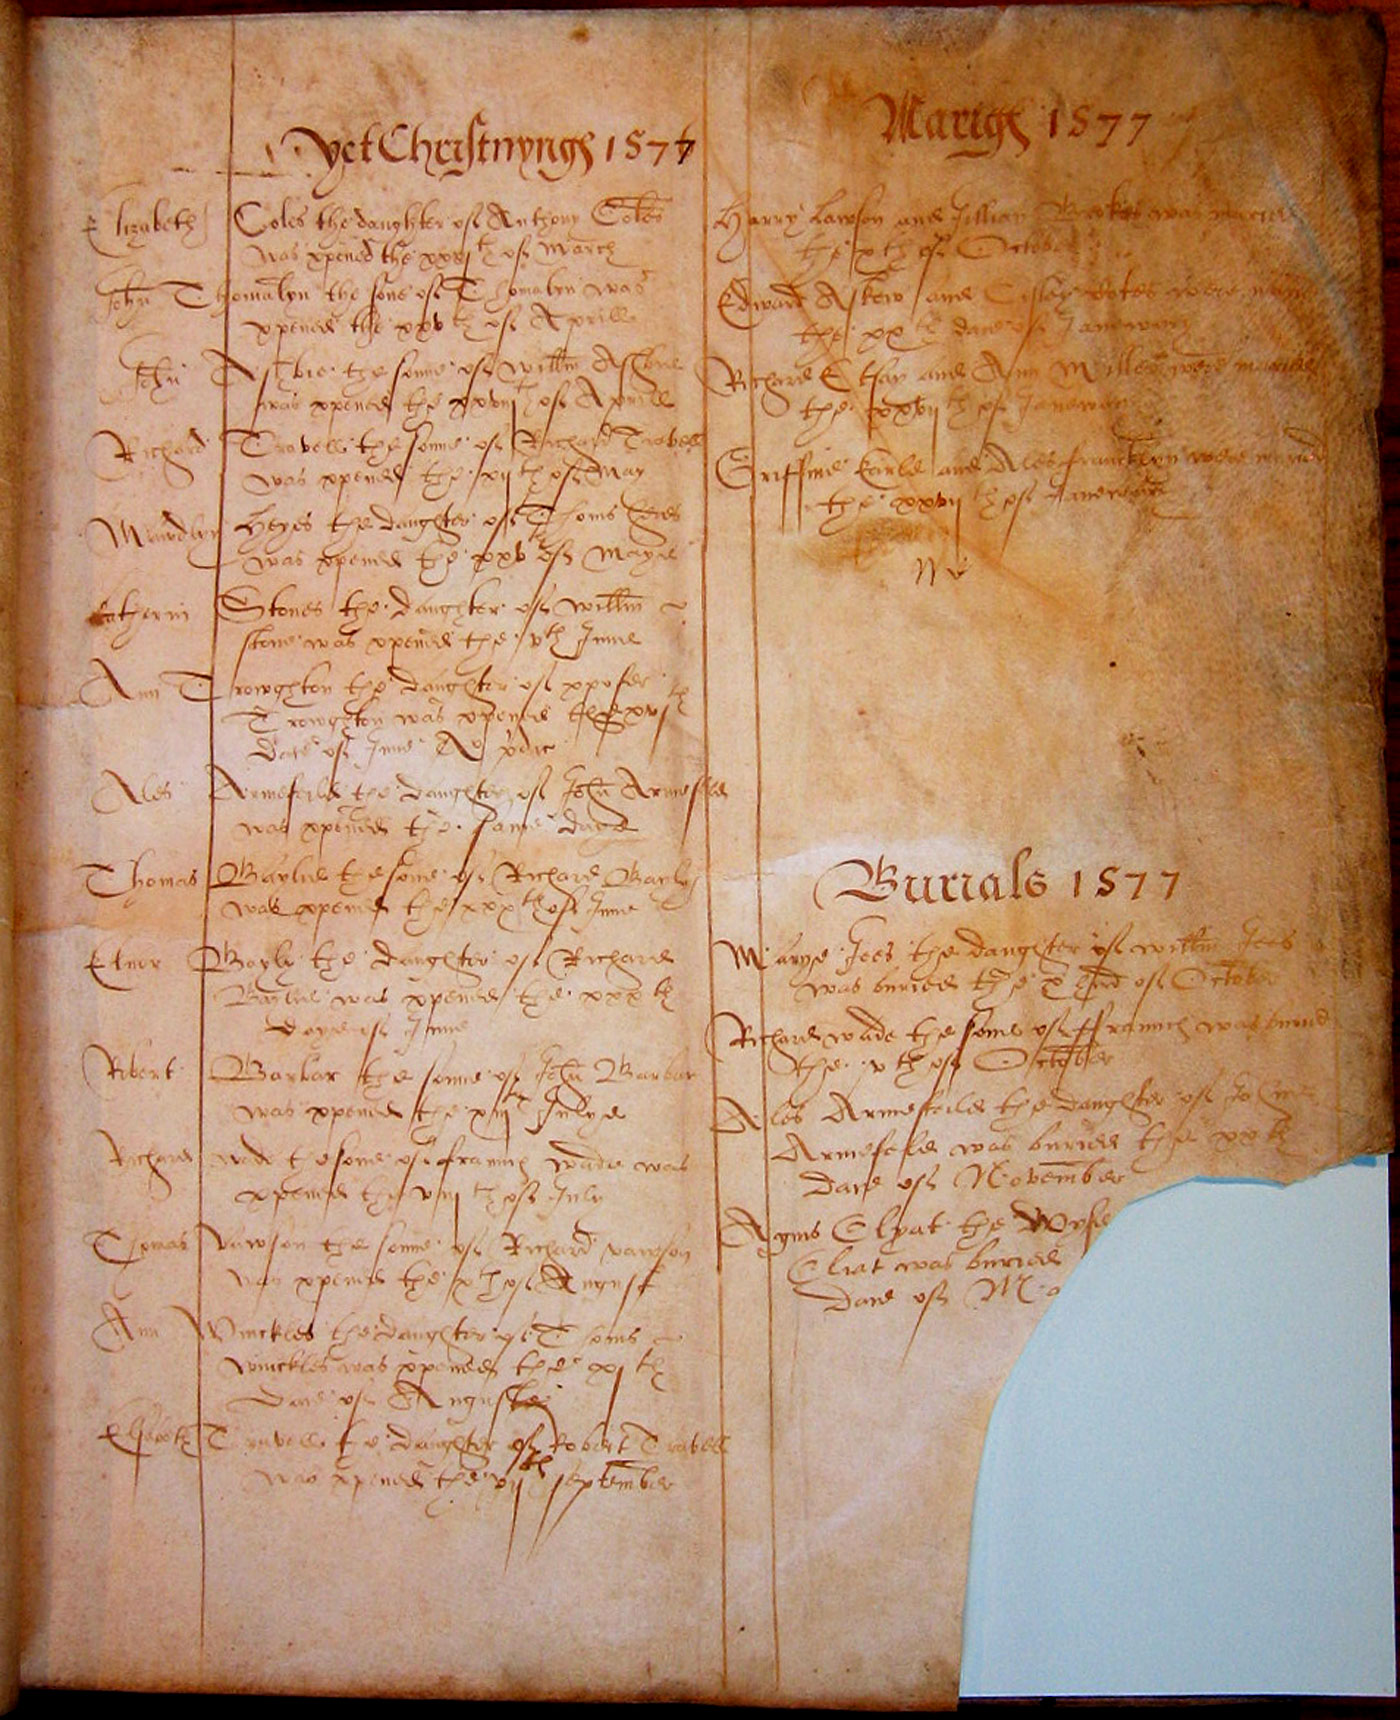 yet Christnyngs 1577
Elizabeth Coles the daughter of Anthony Coles
was xpened the of March
John Thomalyn the sone of Thomalyn was
xpened the xxv th of Aprill
John Ashbie the sonne of Willm Ashbie
was xpened the xxviij th of Aprill
Richard Travell the sonne of Richard Travell
was xpened the xij th of May
Mawdlyn Heyes the daughter of Thoms
was xpened the xxv th of Maye
Katherin Stones the daughter of Willm
stone was xpened the vth June
Ann Trowghton the daughter of xpofer
Trowghton was xpened the xvj th
daie of June
Ales Armefeild the daughter of John Armefeild
was xpened the same daye
Thomas Baylie the sonne of Richard Bayly
was xpened the xxx th of June
Elnor Bayly the daughter of Richard
Baylie was xpened the xxx th
daye of June
Robert Barbar the sonne of John Barbar
was xpened the xiij th Julye
Richard wade the sonne of francis wade was
xpened the viij th of July
Thomas vawson the sonne of Richard vawson
was xpened the x th of August
Ann Winckles the daughter of Thoms
winckles was xpened the xj th
daie of Auguste
Travell the daughter of Robert Travell
was xpened the vij th september
Mariges 1577
Harry Lawson and Jillian was maried
the x th of October
Edward Askew and Cissay were
the xx th daie of Janewary
Richard and Ann Miller were maried
the xxvij th of Janewary
Griffine Earle and Ales francklyn were maried
the xxvij th of Janewarie
Burials 1577
Marye Jees the daughter of Willm Jees
was buried the of October
Richard wade the sonne of ffrancis was buried
the v th of October
Ales Armefeild the daughter of John
Armefeild was buried the xx th
daie of November
Agnis Elyat the Wyfe
Eliat was buried
daie of